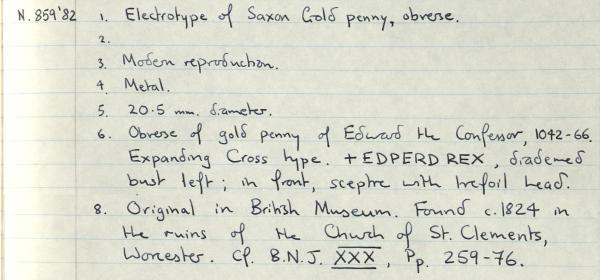 N. 859'82 1. Electrotype of Saxon Gold penny, obverse.
2.
3. Modern reproduction.
4. Metal.
5. 20.5 mm. diameter.
6. Obverse of gold penny of Edward the Confessor, 1042-66.
Expanding Cross type. + EDPERD REX, diademed
bust left; in front, sceptre with trefoil head.
8. Original in British Museum. Found c.1824 in
the ruins of the Church of St. Clements,
Worcester. Cf. B.N.J. XXX, Pp. 259-76.